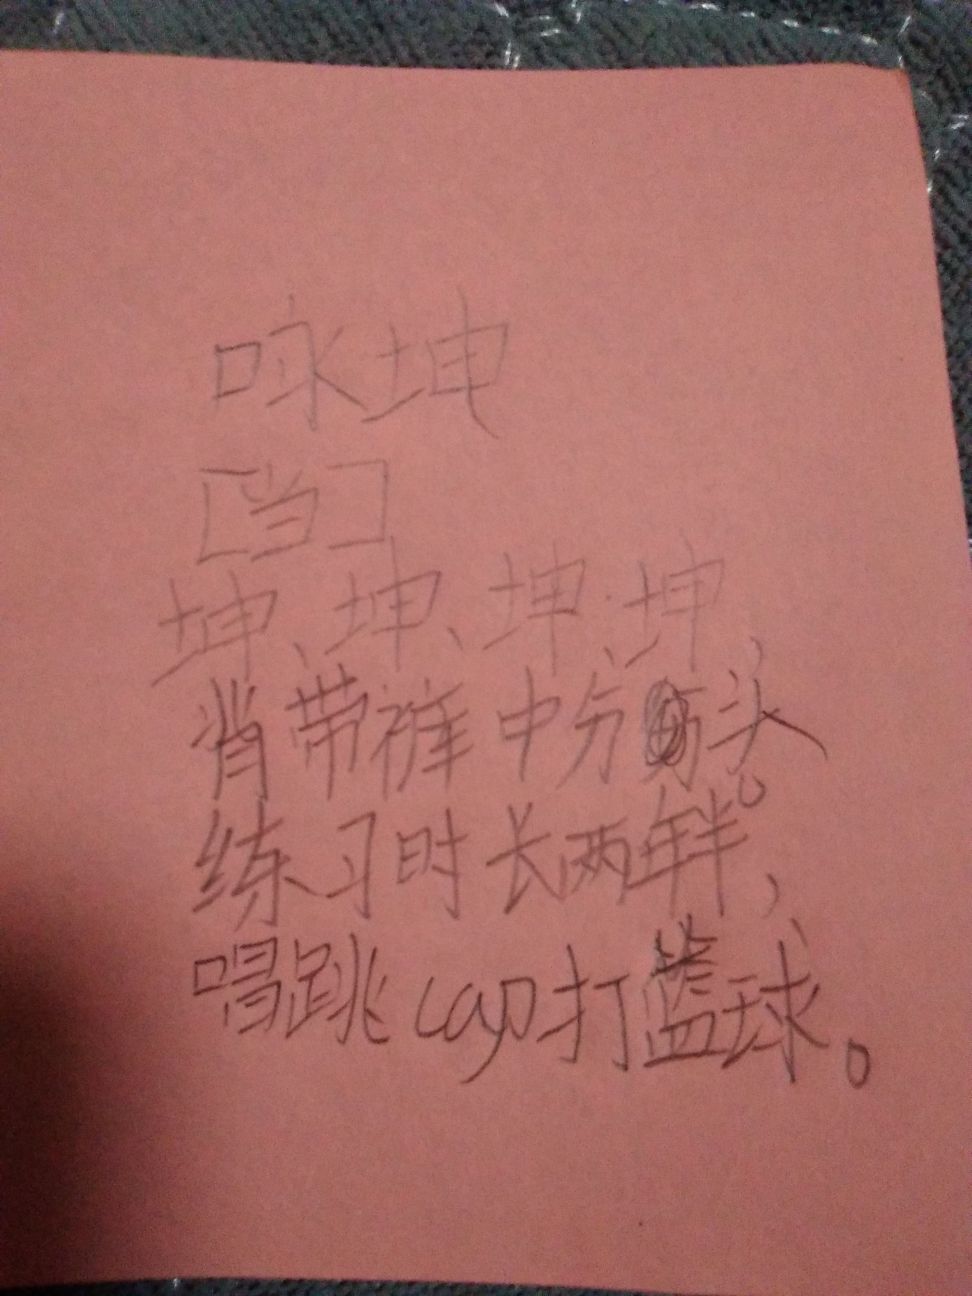 咏坤
[当]
坤、坤、坤、坤,
背带裤中分头。
练习时长两年半,
唱跳rap打篮球。